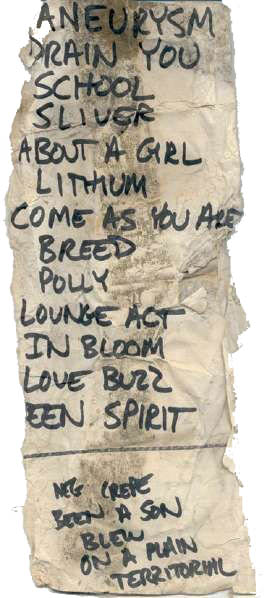 ANEURYSM
DRAIN YOU
SCHOOL
SLIVER
ABOUT A GIRL
LITHIUM
COME AS YOU ARE
BREED
POLLY
LOUNGE ACT
IN BLOOM
LOVE BUZZ
EEN SPIRIT
NEG CREPE
BEEN A SON
BLEW
ON A PLAIN
TERRITORIAL